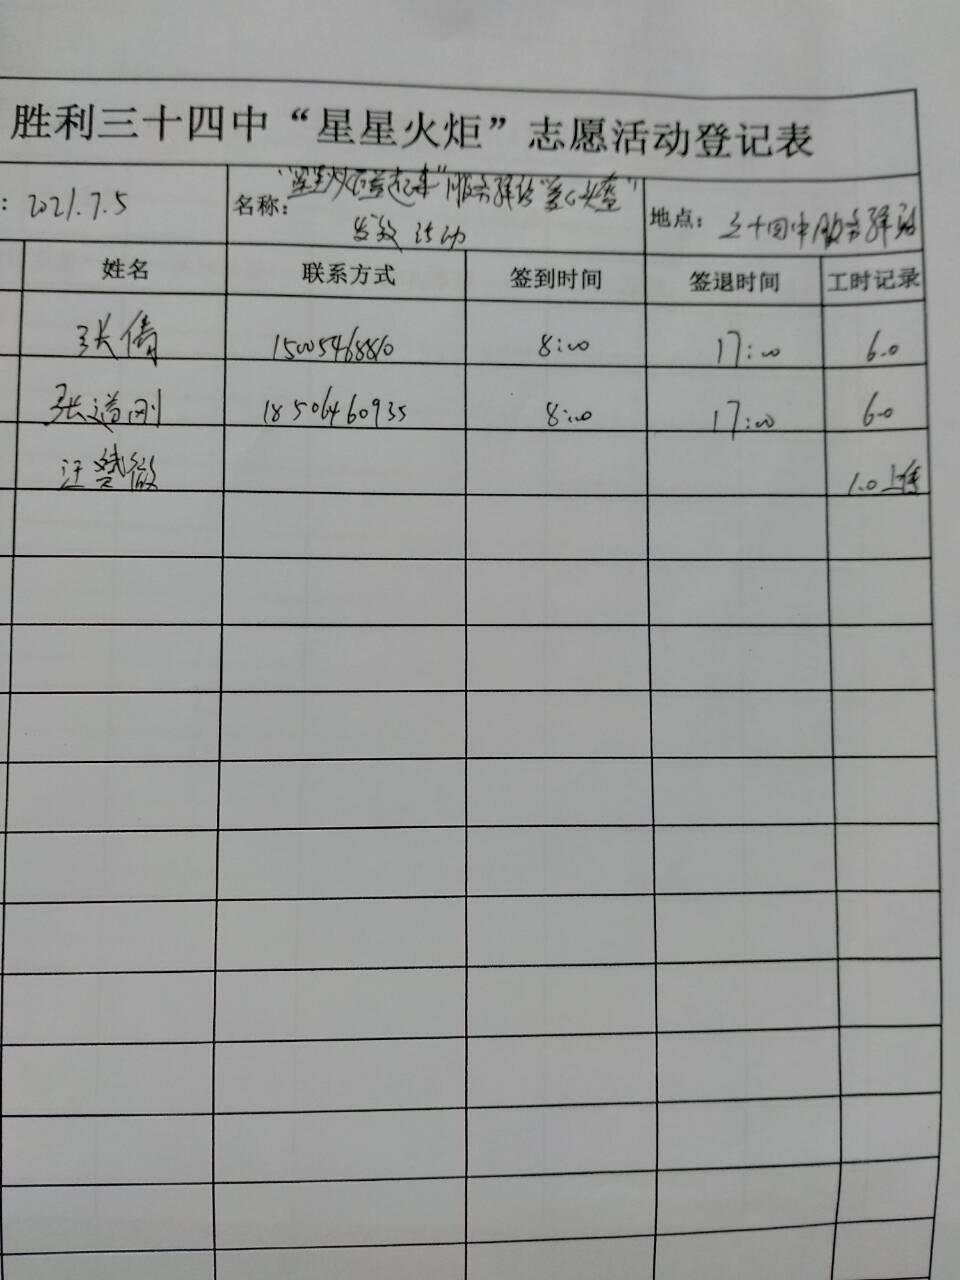 胜利三十四中“星星火炬”志愿活动登记表
: 2021.7.5 名称: 服务驿站“爱心头盔” 地点: 三十四中服务驿站
发放活动
姓名 联系方式 签到时间 签退时间 工时记录
张倩 15005468810 8:00 17:00 6.0
张道刚 18506460935 8:00 17:00 6.0
汪赞微 1.0 上传